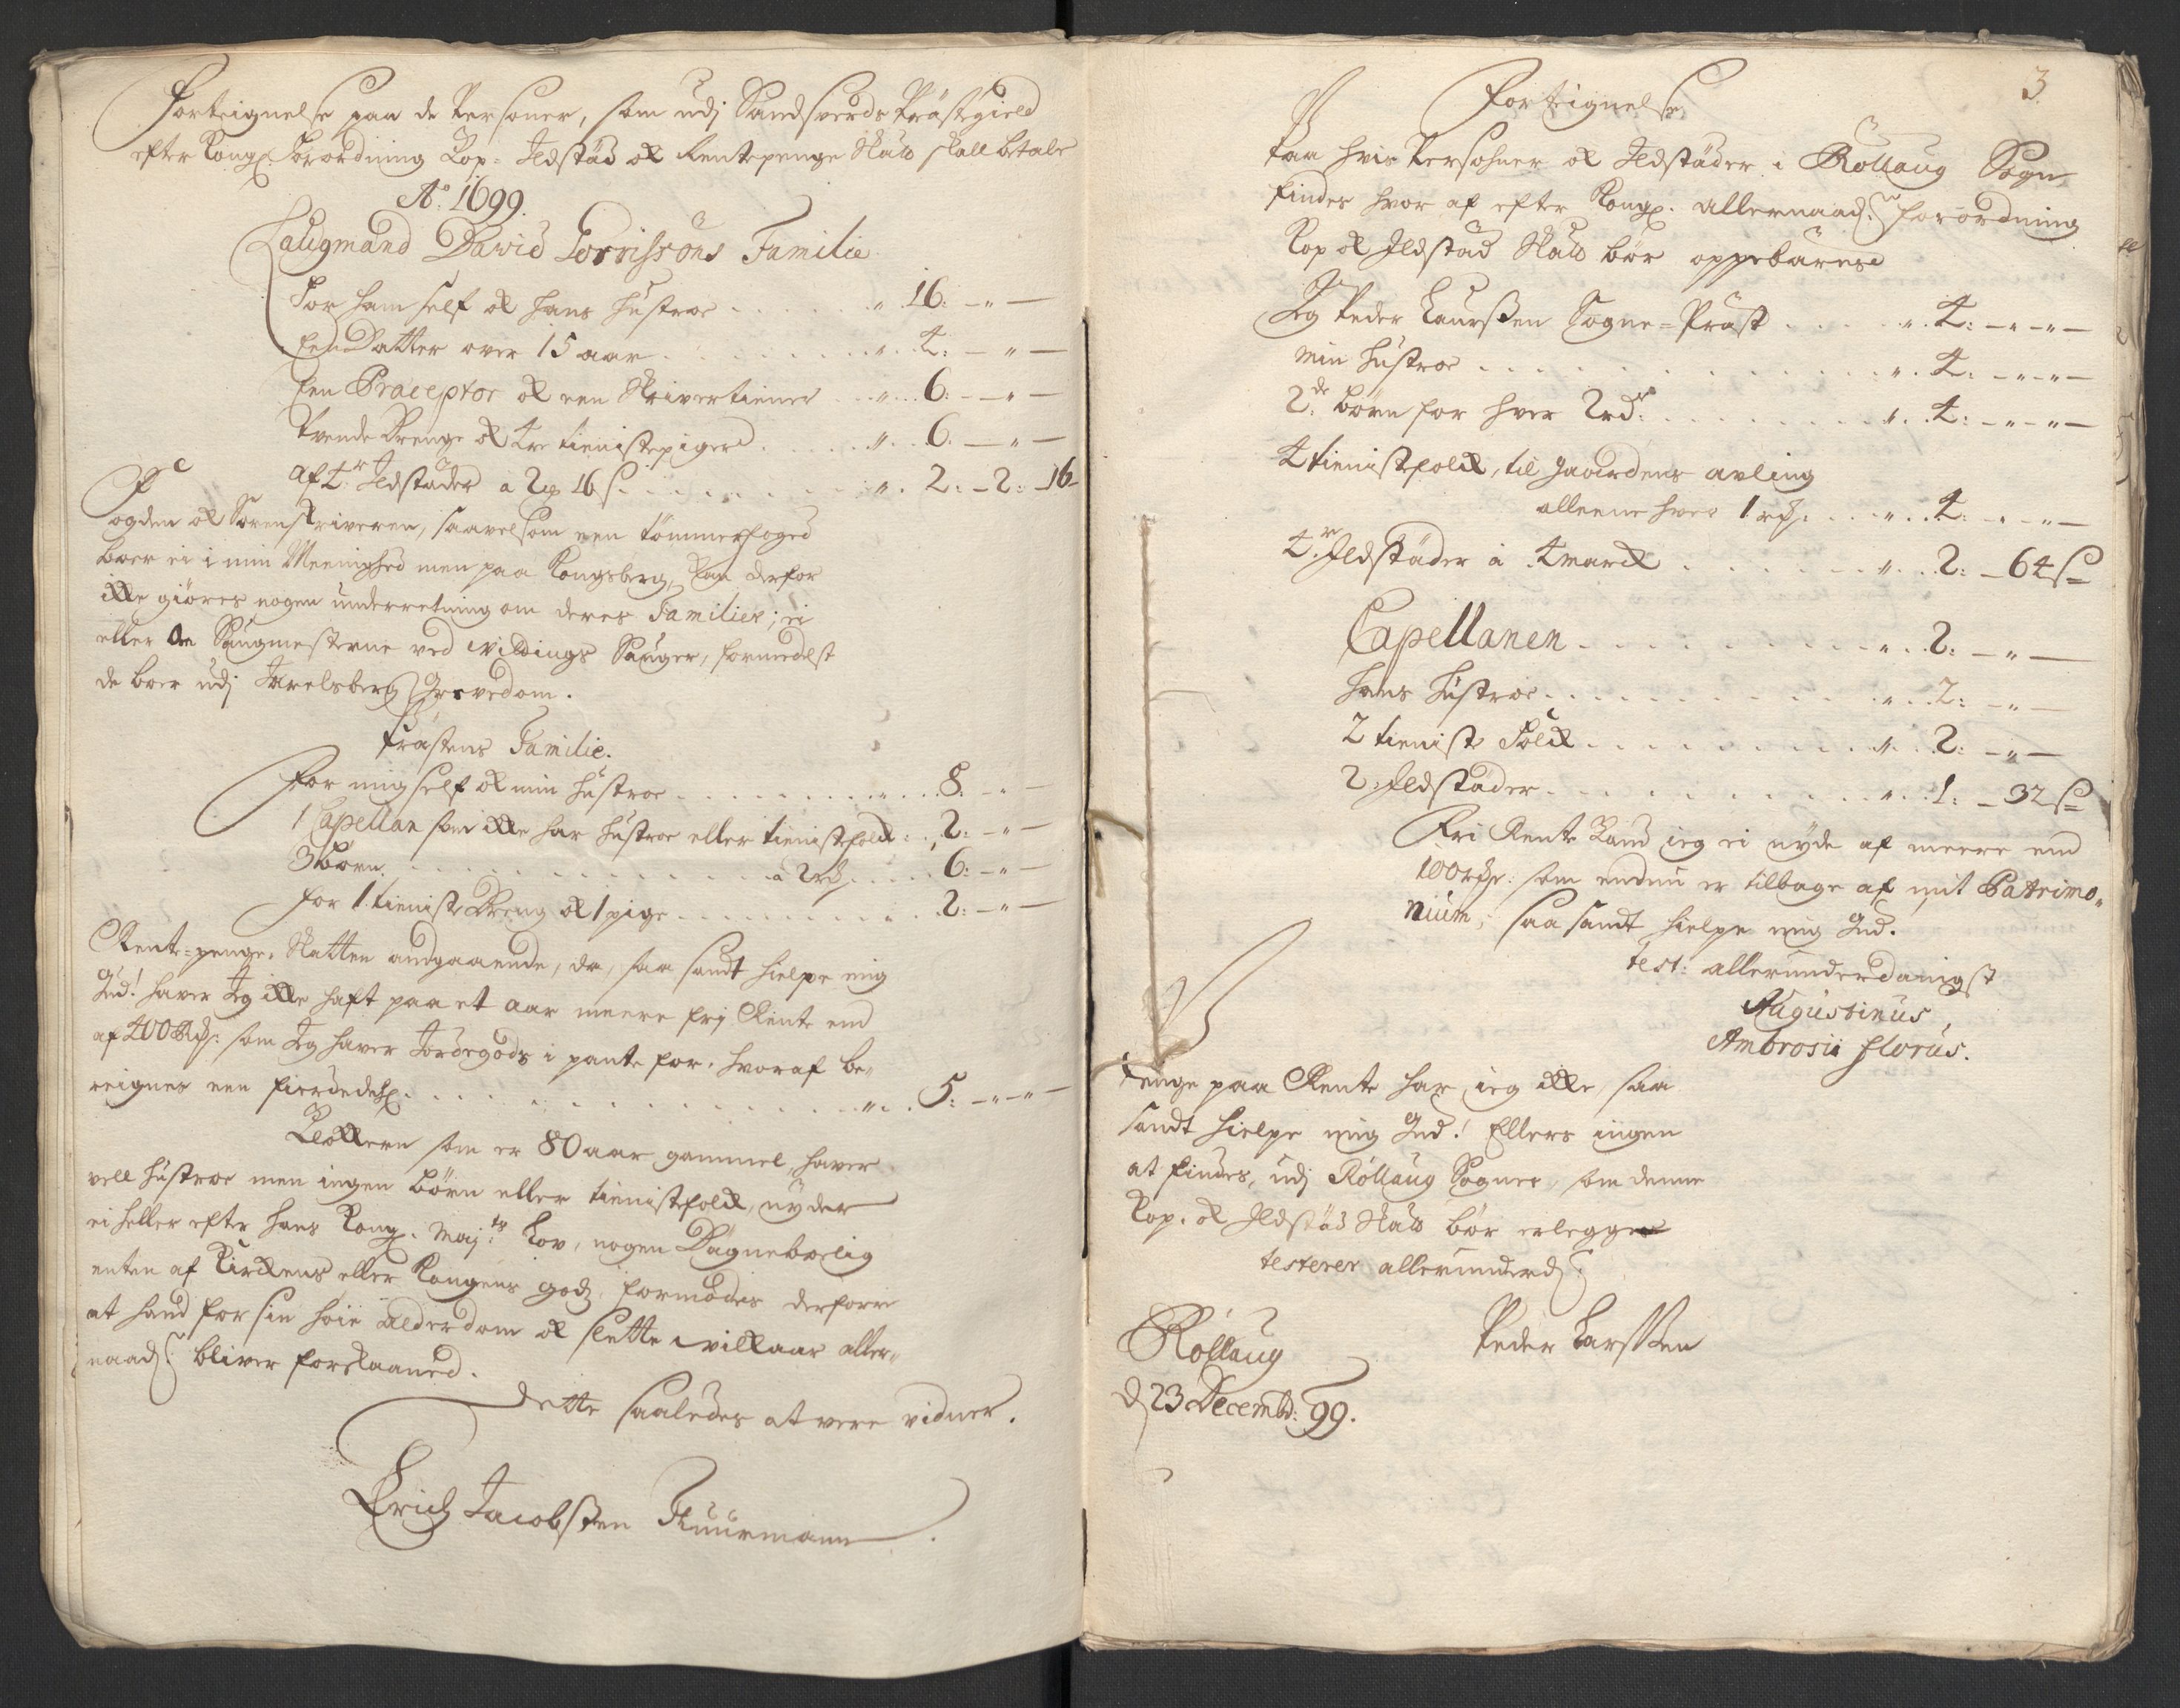 Forteignelse paa de Personer, som udj Sandsverds Præstegield
efter Kongl. Forordning Kop- Ildstæd og Rentepenge Skatt skall betale
Ao. 1699.
Laugmand David Gorrissøns Familie
For ham self og hans hustroe . . . . . " 16: - " -
Een Datter over 15 aar . . . . . " 4: - " -
Een Præceptor og een Skrivertiener . . . " . . 6: - " -
Tvende Drenge og tre tienistepiger . . . . " . . 6: - " -
af 4r Ildstæder a 2 16 s. . . . . . " . 2: - 2: - 16 -
Fogden og Sorenskriveren, saavelsom een tømmerfoged
boer ei i min Meenighed men paa Kongsberg, kan derfor
ikke giøres nogen underretning om deres Familier; ei
eller de Saugmesterne ved Vildings Sauger, formedelst
de boer udj Jarelsberg Grevedom.
Præstens Familie.
For mig self og min hustroe . . . . . " . . 8: - " -
1 Capellan som ikke har hustroe eller tienistefolck . . 2: - " -
3 børn. . . . . . . a 2 rd. . . . . 6: - " -
for 1 tieniste Dreng og 1 pige . . . . . 2: - " -
Rente-penge-Skatten andgaaende, da, saa sandt hielpe mig
Gud! haver Jeg ikke haft paa et aar meere frj Rente end
af 400 Rdr. som Jeg haver Jordegods i pante for, hvoraf be-
reignes een fierdedehl. . . . . . . . " . . 5: - " - " -
Klokkeren som er 80 aar gammel, haver
vell hustroe men ingen børn eller tienistefolck, nyder
ei heller efter hans Kong. Maj:ts Lov, nogen Dagnebrelig
enten af Kirckens eller Kongens godz, formodes derforre
at hand for sin høie Alderdom og slette vilkaar aller-
naad. bliver forskaaned.
Dette saaledes at vere vidner.
Erich Jacobssen Fhuurmann.
3.
Forteignelse
Paa hvis Persohner og Ildstæder i Rollaug Sogn
findes hvor af efter Kongl. allernaad. forordning
Kop og Ildstæd Skatt bør oppebæres
Jeg Peder Laurssen Sogne-Præst . . . . . ". 4: - " - " -
min hustroe . . . . . . . ". 4: - " - " -
2de børn for hver 2 rdr. . . . . . ". . 4: - " - " -
4 tienistefolck, til gaardens avling
alleene hver 1 rd. . . . " . . 4: - " - " -
4r Ildstæder à 4 marck . . . . . " . . 2: - 64 s
Capellanen . . . . . . . ". . 2: - " -
hans hustroe . . . . . . . ". . 2: - " -
2 tieniste Folck . . . . . . ". . 2: - " -
2 Ildstæder . . . . . . . ". . 1: - 32 s
Fri Rente kand ieg ei nyde af meere end
100 rdr. som endnu er tilbage af mit Patrimo-
nium, saa sandt hielpe mig Gud.
test: allerunderdanigst
Augustinus
Ambrosii florus.
Penge paa Rente har ieg ikke, saa
sandt hielpe mig Gud! Ellers ingen
at findes, udj Rollaug Sogner, som denne
Kop- og Ildstæd Skatt bør erlegge
testerer allerunderd.
Rollaug
d 23 Decembr: 99.
Peder Larssen